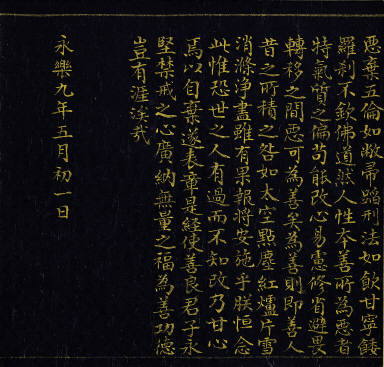 惡棄五倫如敝帚蹈刑法如飲甘寧餧
羅刹不欽佛道然人性本善所為惡者
特氣質之偏苟能改心易慮修省避畏
轉移之間惡可為善矣為善則即善人
昔之所積之咎如太空點塵紅爐片雪
消滌淨盡雖有果報將安施乎朕恒念
此惟恐世之人有過而不知改乃甘心
焉以自棄遂表章是經使善良君子永
堅禁戒之心廣納無量之福為善功德
豈有涯涘哉
永樂九年五月初一日